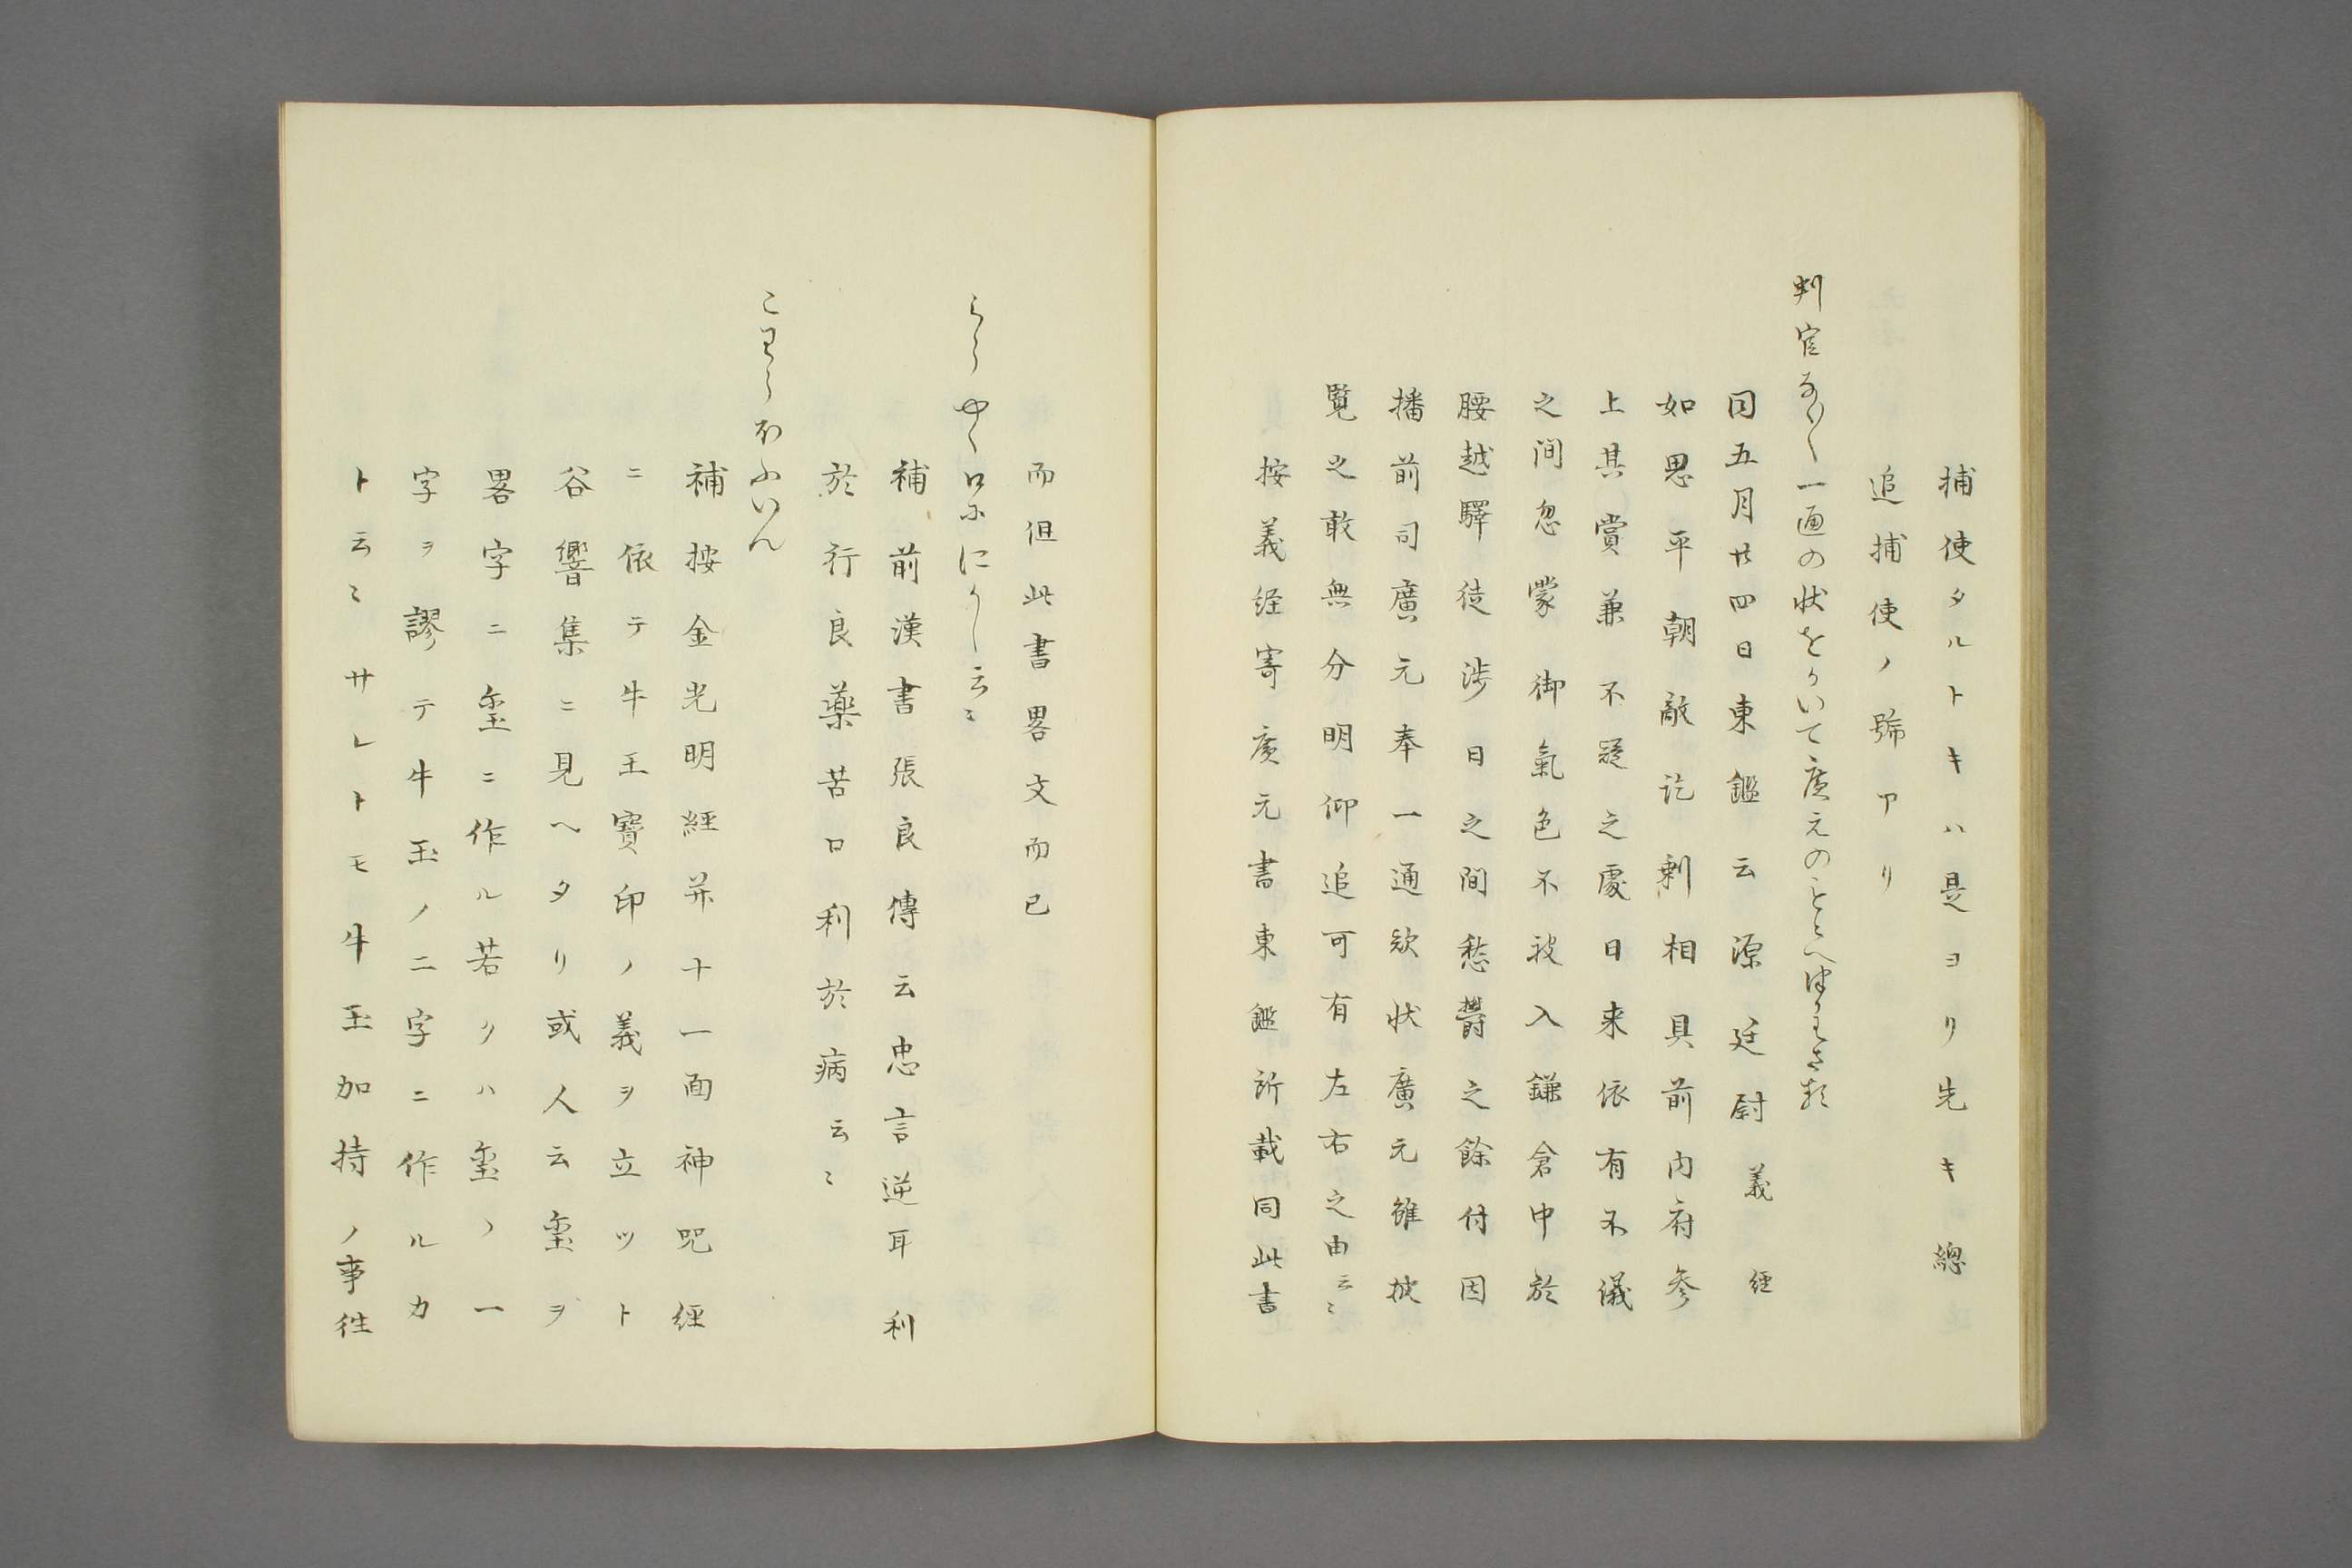 捕使タルトキハ是ヨリ先キ總
追捕使ノ號アリ
判官なく〳〵一通の状をかいて廣元のもとへつかわさる
同五月廿四日東鑑云源廷尉義經
如思平朝敵訖剰相具前内府参
上其賞兼不疑之處日来依有不儀
之間忽蒙御氣色不被入鎌倉中於
腰越驛徒渉日之間愁欝之餘付因
播前司廣元奉一通欵状廣元雖披
覧之敢無分明仰追可有左右之由云〻
按義経寄廣元書東鑑所載同此書
而但此書畧文而已
らうやく口ににかし云〻
補前漢書張良傳云忠言逆耳利
於行良薬苦口利於病云〻
こわうほふいん
補按金光明經并十一面神呪經
ニ依テ牛王寶印ノ義ヲ立ツト
谷響集ニ見ヘタリ或人云玺ヲ
畧字ニ玺ニ作ル若クハ玺ノ一
字ヲ謬テ牛玉ノ二字ニ作ルカ
ト云〻サレトモ牛玉加持ノ事往